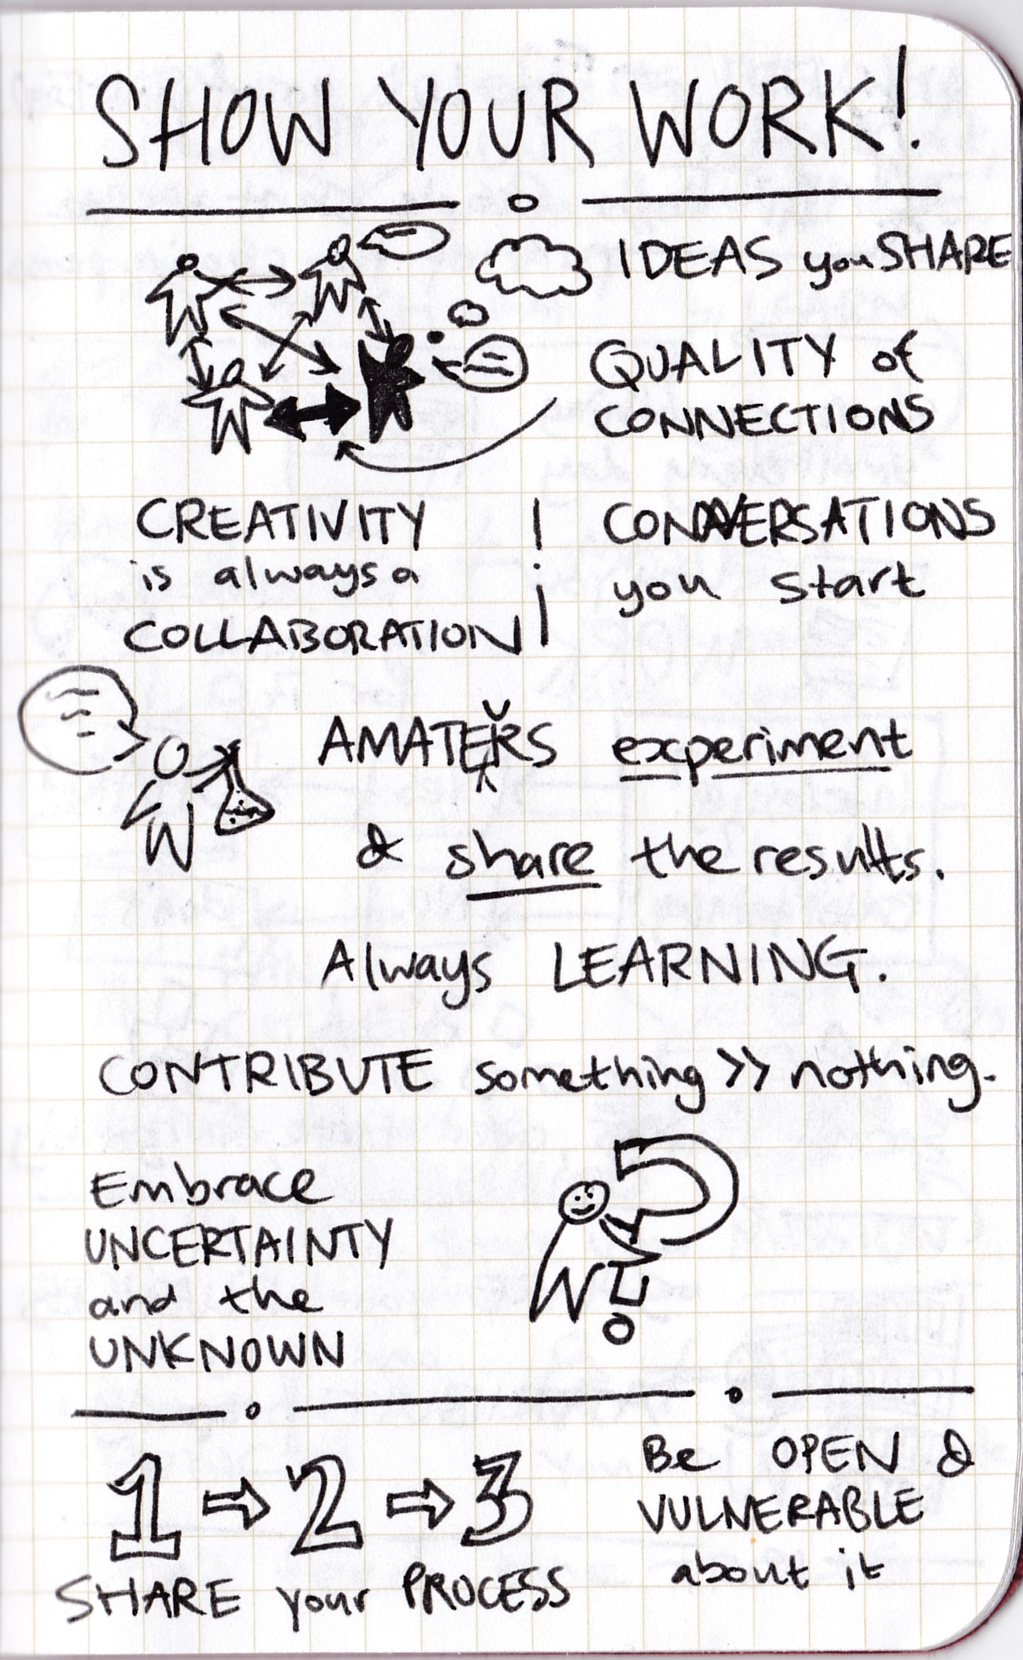 SHOW YOUR WORK!
IDEAS you SHARE
QUALITY of
CONNECTIONS
CREATIVITY
is always a
COLLABORATION
CONVERSATIONS
you start
AMATEURS experiment
& share the results.
Always LEARNING.
CONTRIBUTE something >> nothing.
Embrace
UNCERTAINTY
and the
UNKNOWN
?
1 ⇒ 2 ⇒ 3
SHARE your PROCESS
Be OPEN &
VULNERABLE
about it